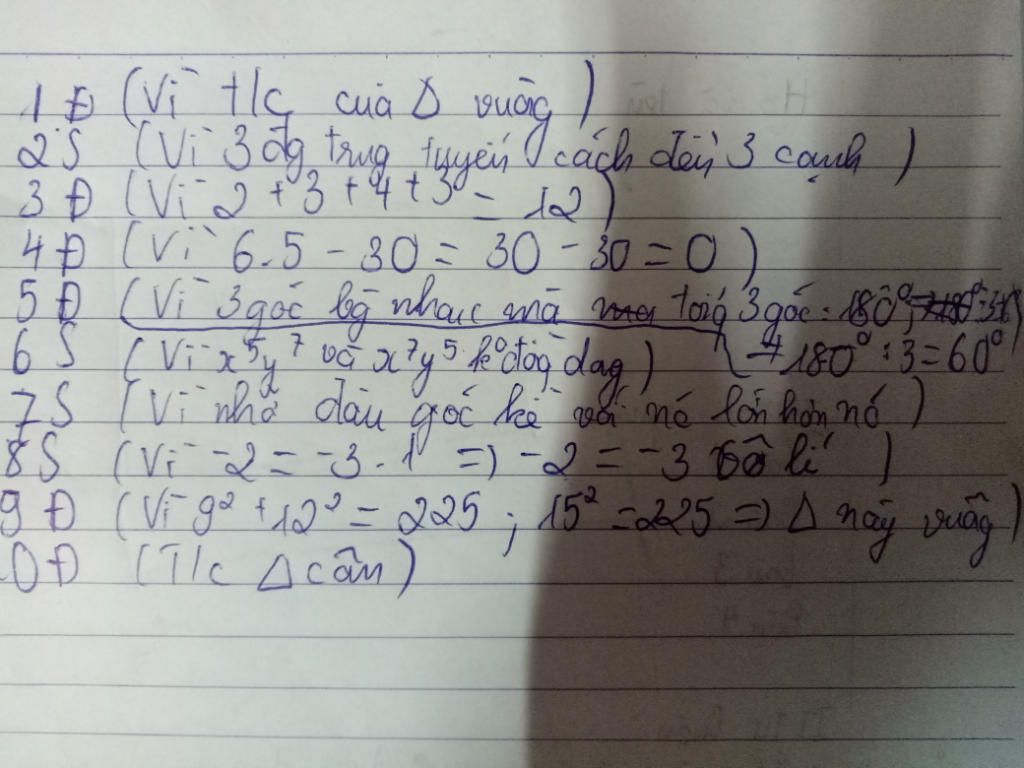 1 Đ (Vì t/c của Δ vuông)
2 S (Vì 3 đg trug tuyến cách đều 3 cạnh)
3 Đ (Vì 2 + 3 + 4 + 3 = 12)
4 Đ (Vì 6.5 - 30 = 30 - 30 = 0)
5 Đ (Vì 3 góc bg nhau mà tổng 3 góc : 180°;
6 S (Vì x⁵y⁷ và x⁷y⁵ k° đồg dạg) → 180° : 3 = 60°
7 S (Vì nhỡ đâu góc kề với nó lớn hơn nó)
8 S (Vì -2 = -3 . 1 => -2 = -3 vô lí)
9 Đ (Vì 9² + 12² = 225 ; 15² = 225 => Δ này vuông)
0 Đ (T/c Δ cân)